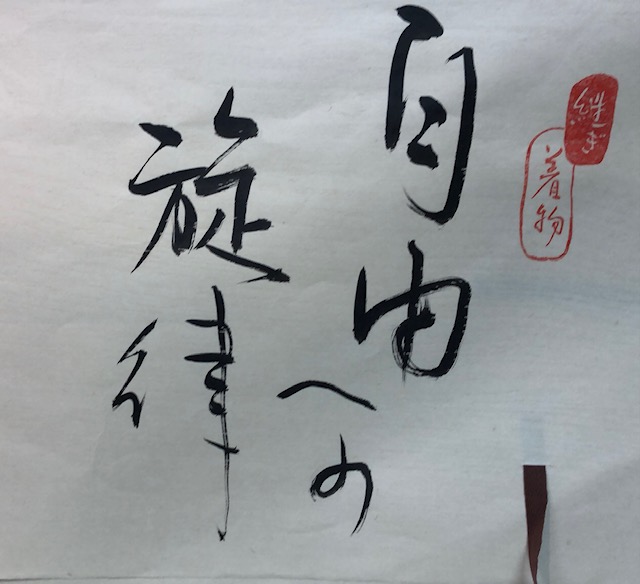 継ぎ
着物
自由への
旋律